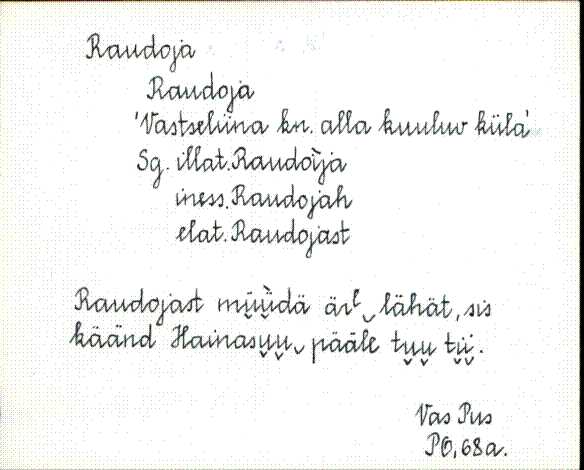 Raudoja
Raudoja
'Vastseliina kn. alla kuuluv küla'
Sg. illat. Raudòija
iness. Raudojah
elat. Raudojast
Raudojast mü̬ǜ̬dä ärˡ ̮ lähät, sis
käänd Hainasu̬u̬ ̮ pääle tu̬u̬ ti̬i̬.
Vas Pus
PO, 68a.